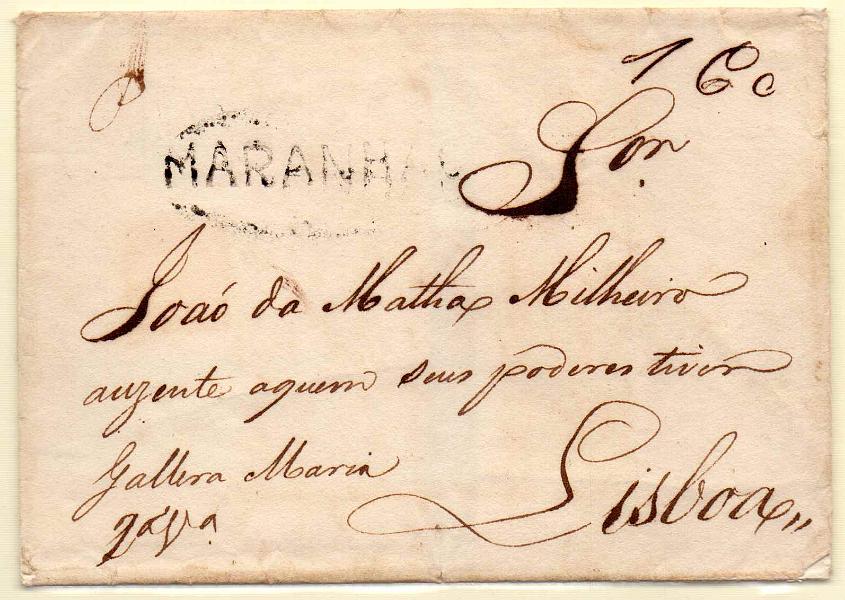 1 Cc
MARANHAO
Snr.
João da Matha Milheiro
auzente aquem seus poderes tiver
Gallera Maria
2a va
Lisboa,,